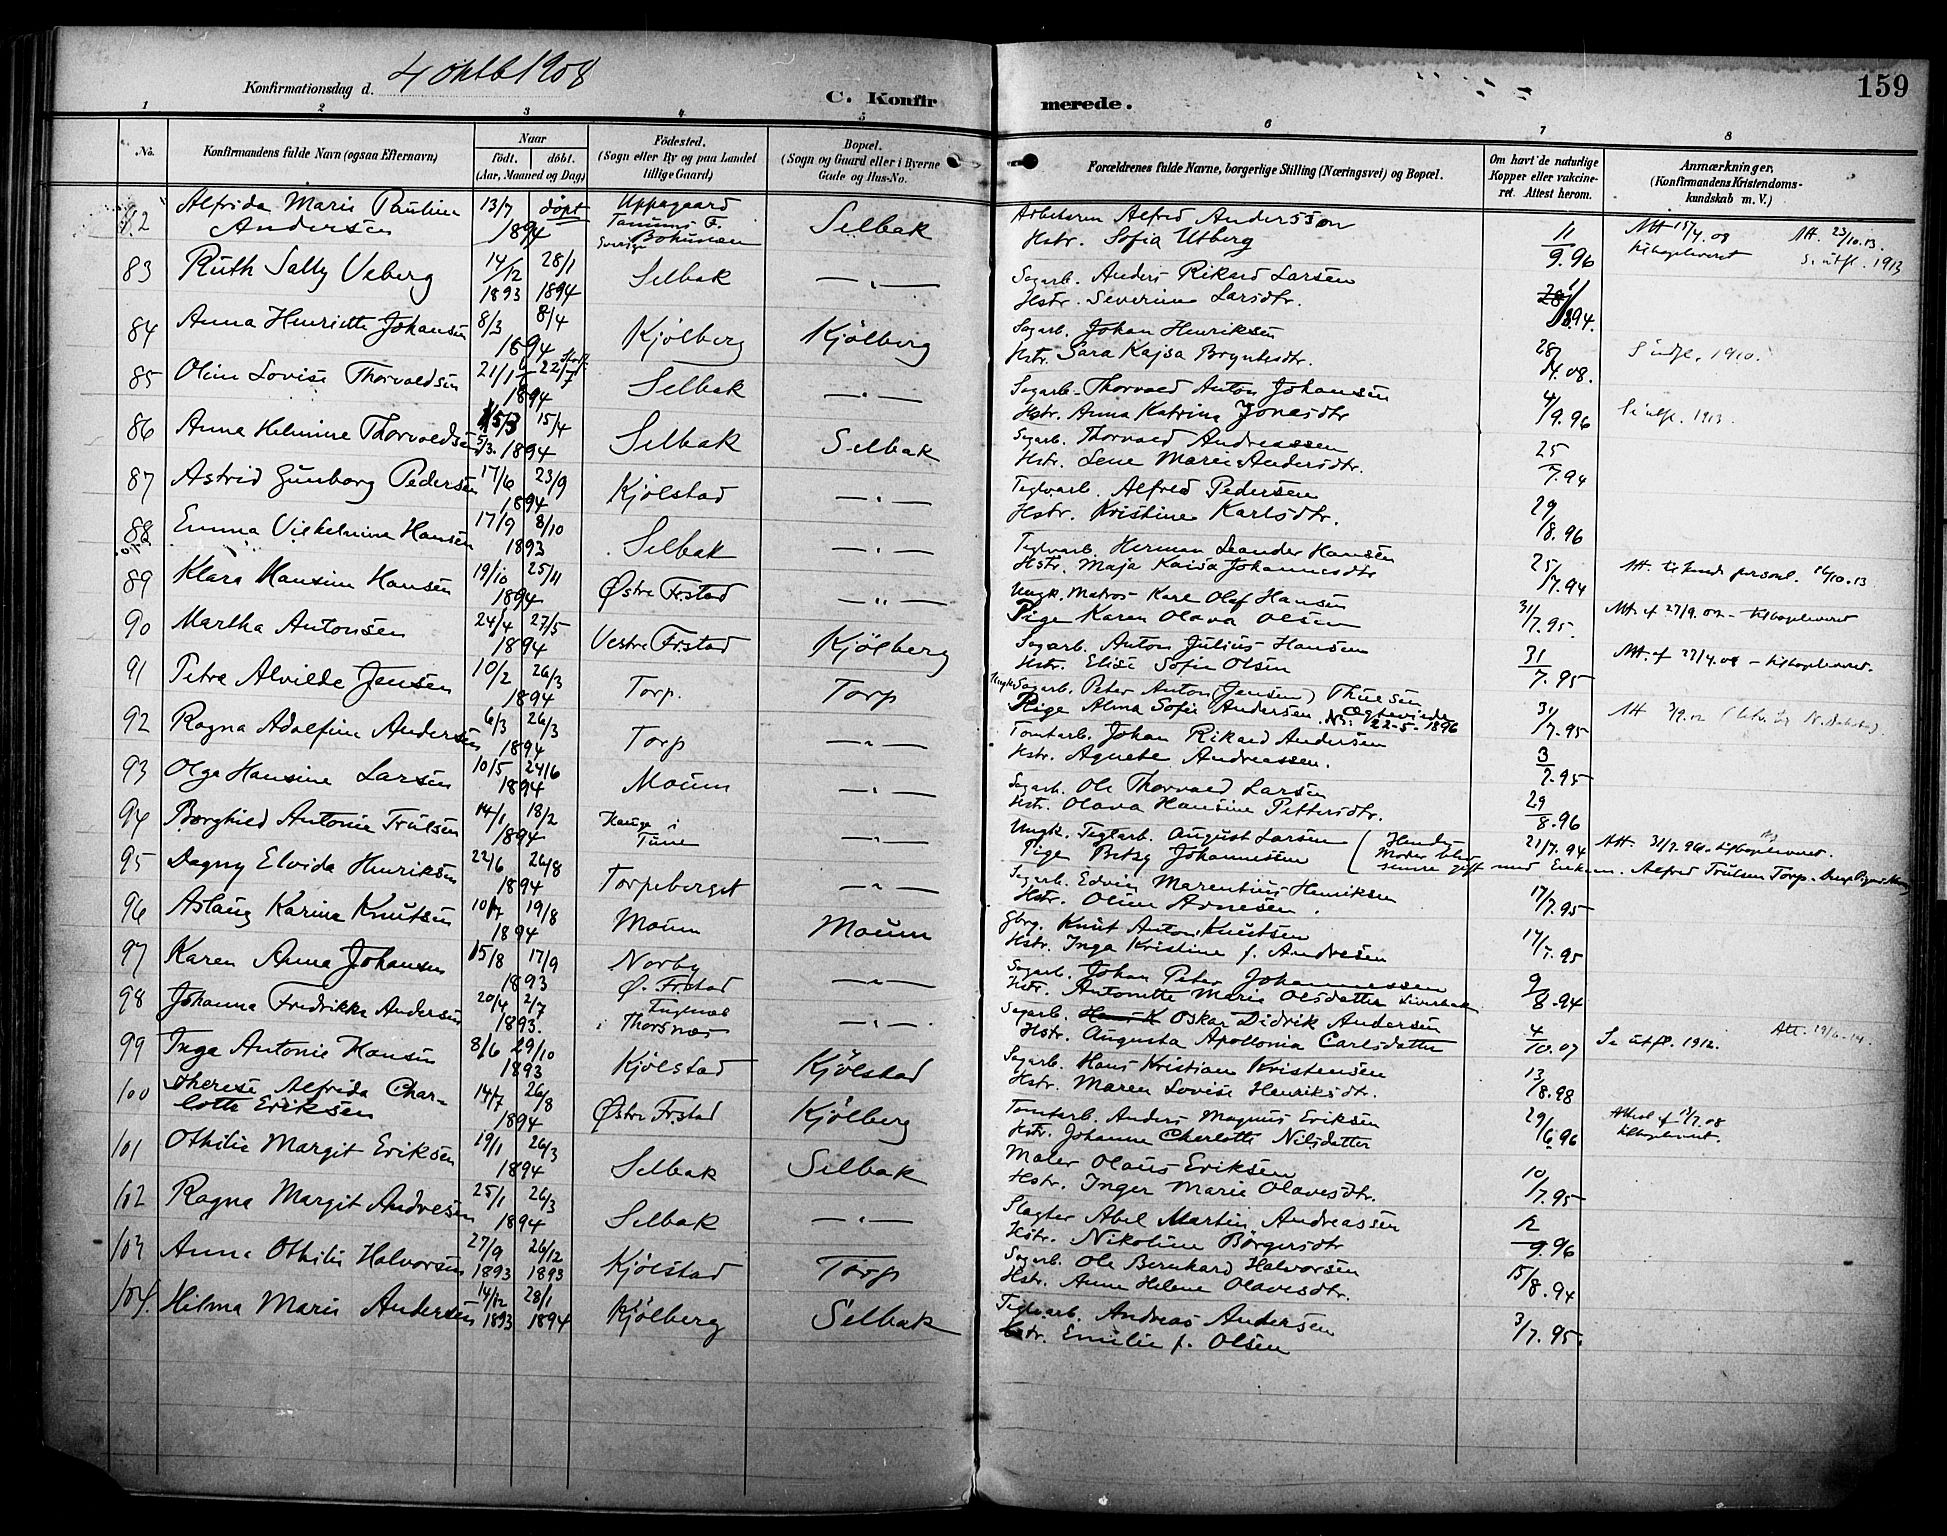 159
Konfirmationsdag d. 4 oktb 1908
C. Konfirmerede.
1 2 3 4 5 6 7 8
No.
Konfirmandens fulde Navn (ogsaa Efternavn)
Naar
født. døbt.
(Aar, Maaned og Dag)
Fødested.
(Sogn eller By og paa Landet tillige Gaard)
Bopæl.
(Sogn og Gaard eller i Byerne Gade og Hus-No.
Forældrenes fulde Navne, borgerlige Stilling (Næringsvei) og Bopæl.
Om havt de naturlige Kopper eller vakcineret. Attest herom.
Anmærkninger.
(Konfirmandens Kristendomskundskab m. V.)
Alfrida Marie Pauline Andersen 13/7 1894 døpt Uppegaard Tanums F. Bohuslen Sverige Selbak
Arbeideren Alfred Andersson
Hstr. Sofia Utberg 11/9.96
Att 15/4.08 tilbageleveret Att. 23/10.13. S. utfl. 1913
83 Ruth Sally Veberg 14/12 1893 28/1 1894 Selbak — " —
Sagarb. Anders Rikard Larsen
Hstr. Severine Larsdtr.
84 Anna Henriette Johansen 8/3 8/4 1894 Kjölberg Kjölberg
Sagarb. Johan Henriksen
Hstr. Sara Kajsa Bryntesdtr. 28/4.08. S utfl. 1910.
85 Oline Lovise Thorvaldsen 21/1 22/7 1894 Selbak — " —
Sagarb. Thorvald Anton Johansen
Hstr. Anna Katrina Jonasdtr 4/9.96 Se utfl. 1913
86 Anna Helmine Thorvaldsen 5/3 15/4 5/3. 1894 Selbak Selbak
Sagarb. Thorvald Andreassen
Hstr. Lene Marie Andersdtr. 25/7.94
87 Astrid Gunborg Pedersen 17/6 23/9 1894 Kjölstad — " —
Teglvarb. Alfred Pedersen
Hstr. Kristine Karlsdtr. 29/8.96
88 Emma Vilhelmina Hansen 17/9 8/10 1893 Selbak — " —
Teglvarb. Herman Leander Hansen
Hstr. Maja Kaisa Johannesdtr 25/7.94 Att. 16/10.13
89 Klara Hansine Hansen 19/10 25/11 1894 Østre Frstad — " —
Ungk. Matros Karl Olaf Hansen
Pige Karen Olava Olsen 31/7.95. Att. af 27/9.02 – tilbageleveret
90 Martha Antonsen 24/4 27/5 1894 Vestre Frstad Kjölberg
Sagarb. Anton Julius Hansen
Hstr. Elise Sofie Olsen 31/7.95 Att. af 27/4.08 – tilbageleveret.
91 Petra Alvilde Jensen 10/2 26/3 1894 Torp. Torp
Ungk. Sagarb. Peter Anton (Jensen) Thuesen
Pige Alma Sofie Andersen. Ægteviede 22-5-1896 31/7.95
92 Ragna Adolfine Andersen 6/3 26/3 1894 Torp — " —
Tomtarb. Johan Rikard Andersen
Hstr. Agnete Andreassen. 3/7.95
93 Olga Hansine Larsen 10/5 24/6 1894 Moum — " —
Sagarb. Ole Thorvald Larsen
Hstr. Olava Hansine Pettersdtr. 29/8.96
94 Borghild Antonie Trulsen 14/1 18/2 1894 Hauge i Tune — " —
Ungk. Teglarb. August Larsen
Pige Betsy Johannesen (Hendes Moder blev senere gift med Enkem. Alfred Trulsen Torp. 21/7.94
95 Dagny Elvida Henriksen 22/6 26/8 1894 Torpeberget — " —
Sagarb. Edvin Marentius Henriksen
Hstr. Oline Arnesen. 17/7.95
96 Aslaug Karina Knutsen 10/7 19/8 1894 Moum Moum
Gbrg. Knut Anton Knutsen
Hstr. Inga Kristine f. Andresen 17/7.95
97 Karen Anna Johansen 15/8 17/9 1893 Norby Ø. Frstad — " —
Sagarb. Johan Peter Johannessen
Hstr. Antonette Marie Olsdatter 9/8.94
98 Johanna Fredrikke Andersen 20/4 2/7 1893. Thorsnæs — " —
Sagarb. Oskar Didrik Andersen
Hstr. Augusta Apollonia Carlsdatter 4/10.07 Se utfl. 1912.
99 Inga Antonie Hansen 8/6 29/10 1893 Kjölstad Kjölstad
Sagarb. Hans Kristian Kristensen
Hstr. Maren Lovise Henriksdtr. 13/8.98
100 Therese Alfrida Charlotte Eriksen 14/7 26/8 1894 Østre Frstad Kjölberg
Tomtarb. Anders Magnus Eriksen
Hstr. Johanne Cherlotte Nilsdatter 29/6.96 tilbageleveret.
101 Othilie Margit Eriksen 19/1 26/3 1894 Selbak Selbak
Maler Olaus Eriksen
Hstr. Inger Marie Olavesdtr. 10/7.95
102 Ragna Margit Andresen 25/1 26/3 1894 Selbak — " —
Slagter Abel Martin Andreassen
Hstr. Nikoline Børgersdtr 12/9.96
103 Anna Othilie Halvorsen 27/9 1893 26/12 1893 Kjölstad Torp
Sagarb. Ole Bernhard Halvorsen
Hstr. Anne Helene Olavesdtr. 15/8.94
104. Hilma Marie Andersen 14/12 1893 28/1 1894 Kjölberg Selbak
Teglvarb. Andreas Andersen
Hstr. Emilie f. Olsen 3/7.95.